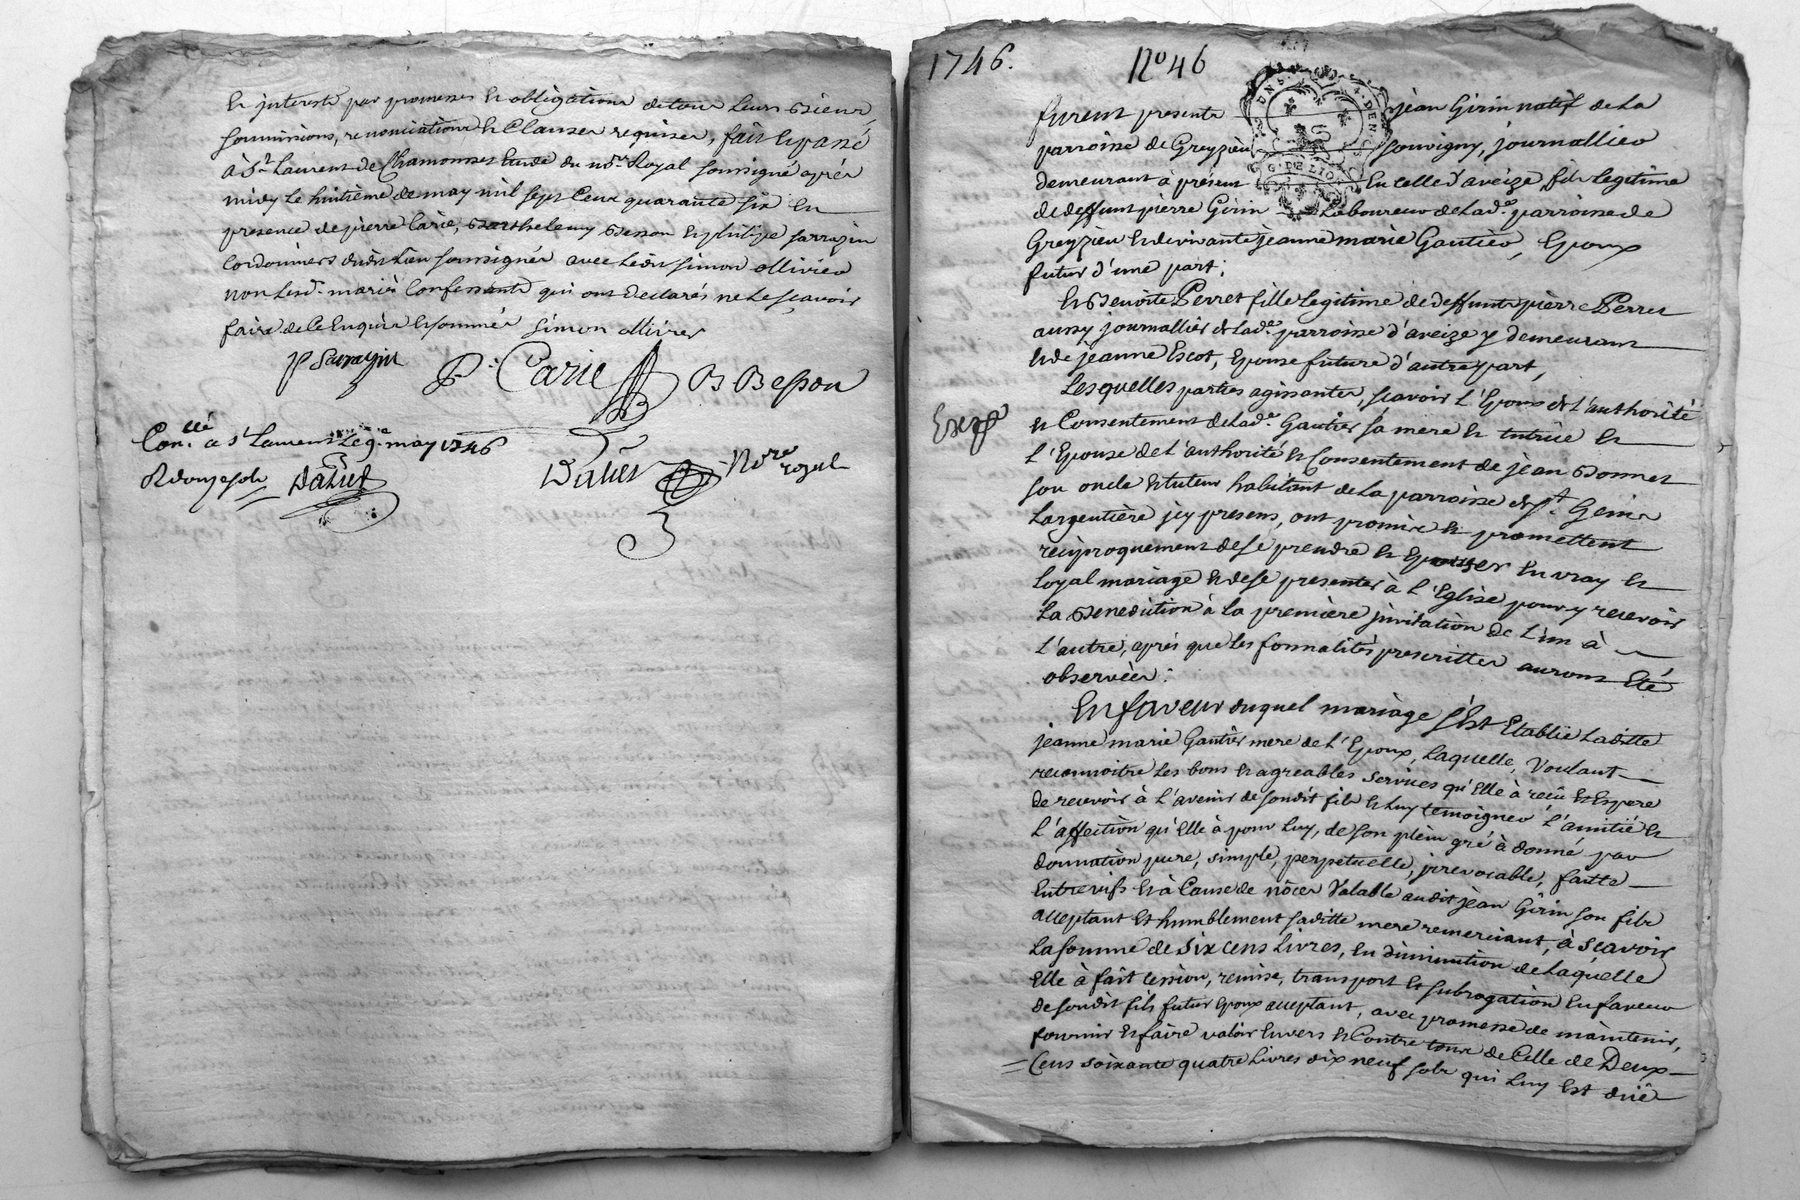 et interests par promesses et obligations de tous leurs Biens,
soumissions, renonciations et Clauses requises, fait et passé
à St. Laurent de Chamousset Etude du nore. Royal soussigné après
midy le huitième de may mil sept Cens quarante six en
presence de pierre Carie, Barthelemy Besson et philipe sarrazin
Cordonniers dudit Lieu soussignés avec ledit simon ollivier
non lesd. mariés Confessants qui ont declarés ne le sçavoir
faire de ce Enquis et sommés simon ollivier
P Sarrazin P. Carie B Besson
Con.llé à St Laurent le 9e may 1746
Dalier
Dalier Nore royal
1746. No 46
furent presents jean Girin natif de La
parroisse de Greyzieu souvigny, journallier
demeurant à présent En celle d'aveize, fils legitime
de deffunt pierre Girin Laboureur de Lade. parroisse de
Greyzieu et de vivante jeanne marie Gautier, Epoux
futur d'une part;
et Benoite Perret fille legitime de deffunt pierre Perret
aussy journallier de lade. parroisse d'aveize y demeurant
et de jeanne Escot, Epouse future d'autre part,
Lesquelles parties agissantes, scavoir l'Epoux de l'authorité
et Consentement de lade. Gautier sa mere et tutrice et
l'Epouse de l'authorité et Consentement de jean Bonnet
son oncle et tuteur habitant de la parroisse de St. Genis
Largentière jcy presens, ont promis et promettent
reciproquement de se prendre et Epouser En vray et
Loyal mariage et de se presenter à l'Eglise pour y recevoir
la Benediction à la première jnvitation de L'un à
l'autre, après que les formalités prescrittes auront Eté
observées:
En faveur duquel mariage s'est Etablie Laditte
jeanne marie Gautier mere de l'Epoux, laquelle, Voulant
reconnoitre les bons et agreables services qu'Elle à reçu et Espere
de recevoir à l'avenir de sondit fils et luy temoigner l'amitié et
l'affection qu'Elle à pour luy, de son plein gré à donné par
donnation pure, simple, perpetuelle, jrrevocable, faitte
Entrevifs et à Cause de nôces Valable audit jean Girin son fils
acceptant et humblement saditte mere remerciant, à scavoir
la somme de six cens Livres, en diminution de laquelle
Elle à fait cession, remise, transport et subrogation En faveur
de sondit fils futur Epoux acceptant, avec promesse de maintenir,
fournir et faire valoir Envers et Contre tous de Celle de Deux
Cens soixante quatre Livres dix neuf sols qui luy Est düe